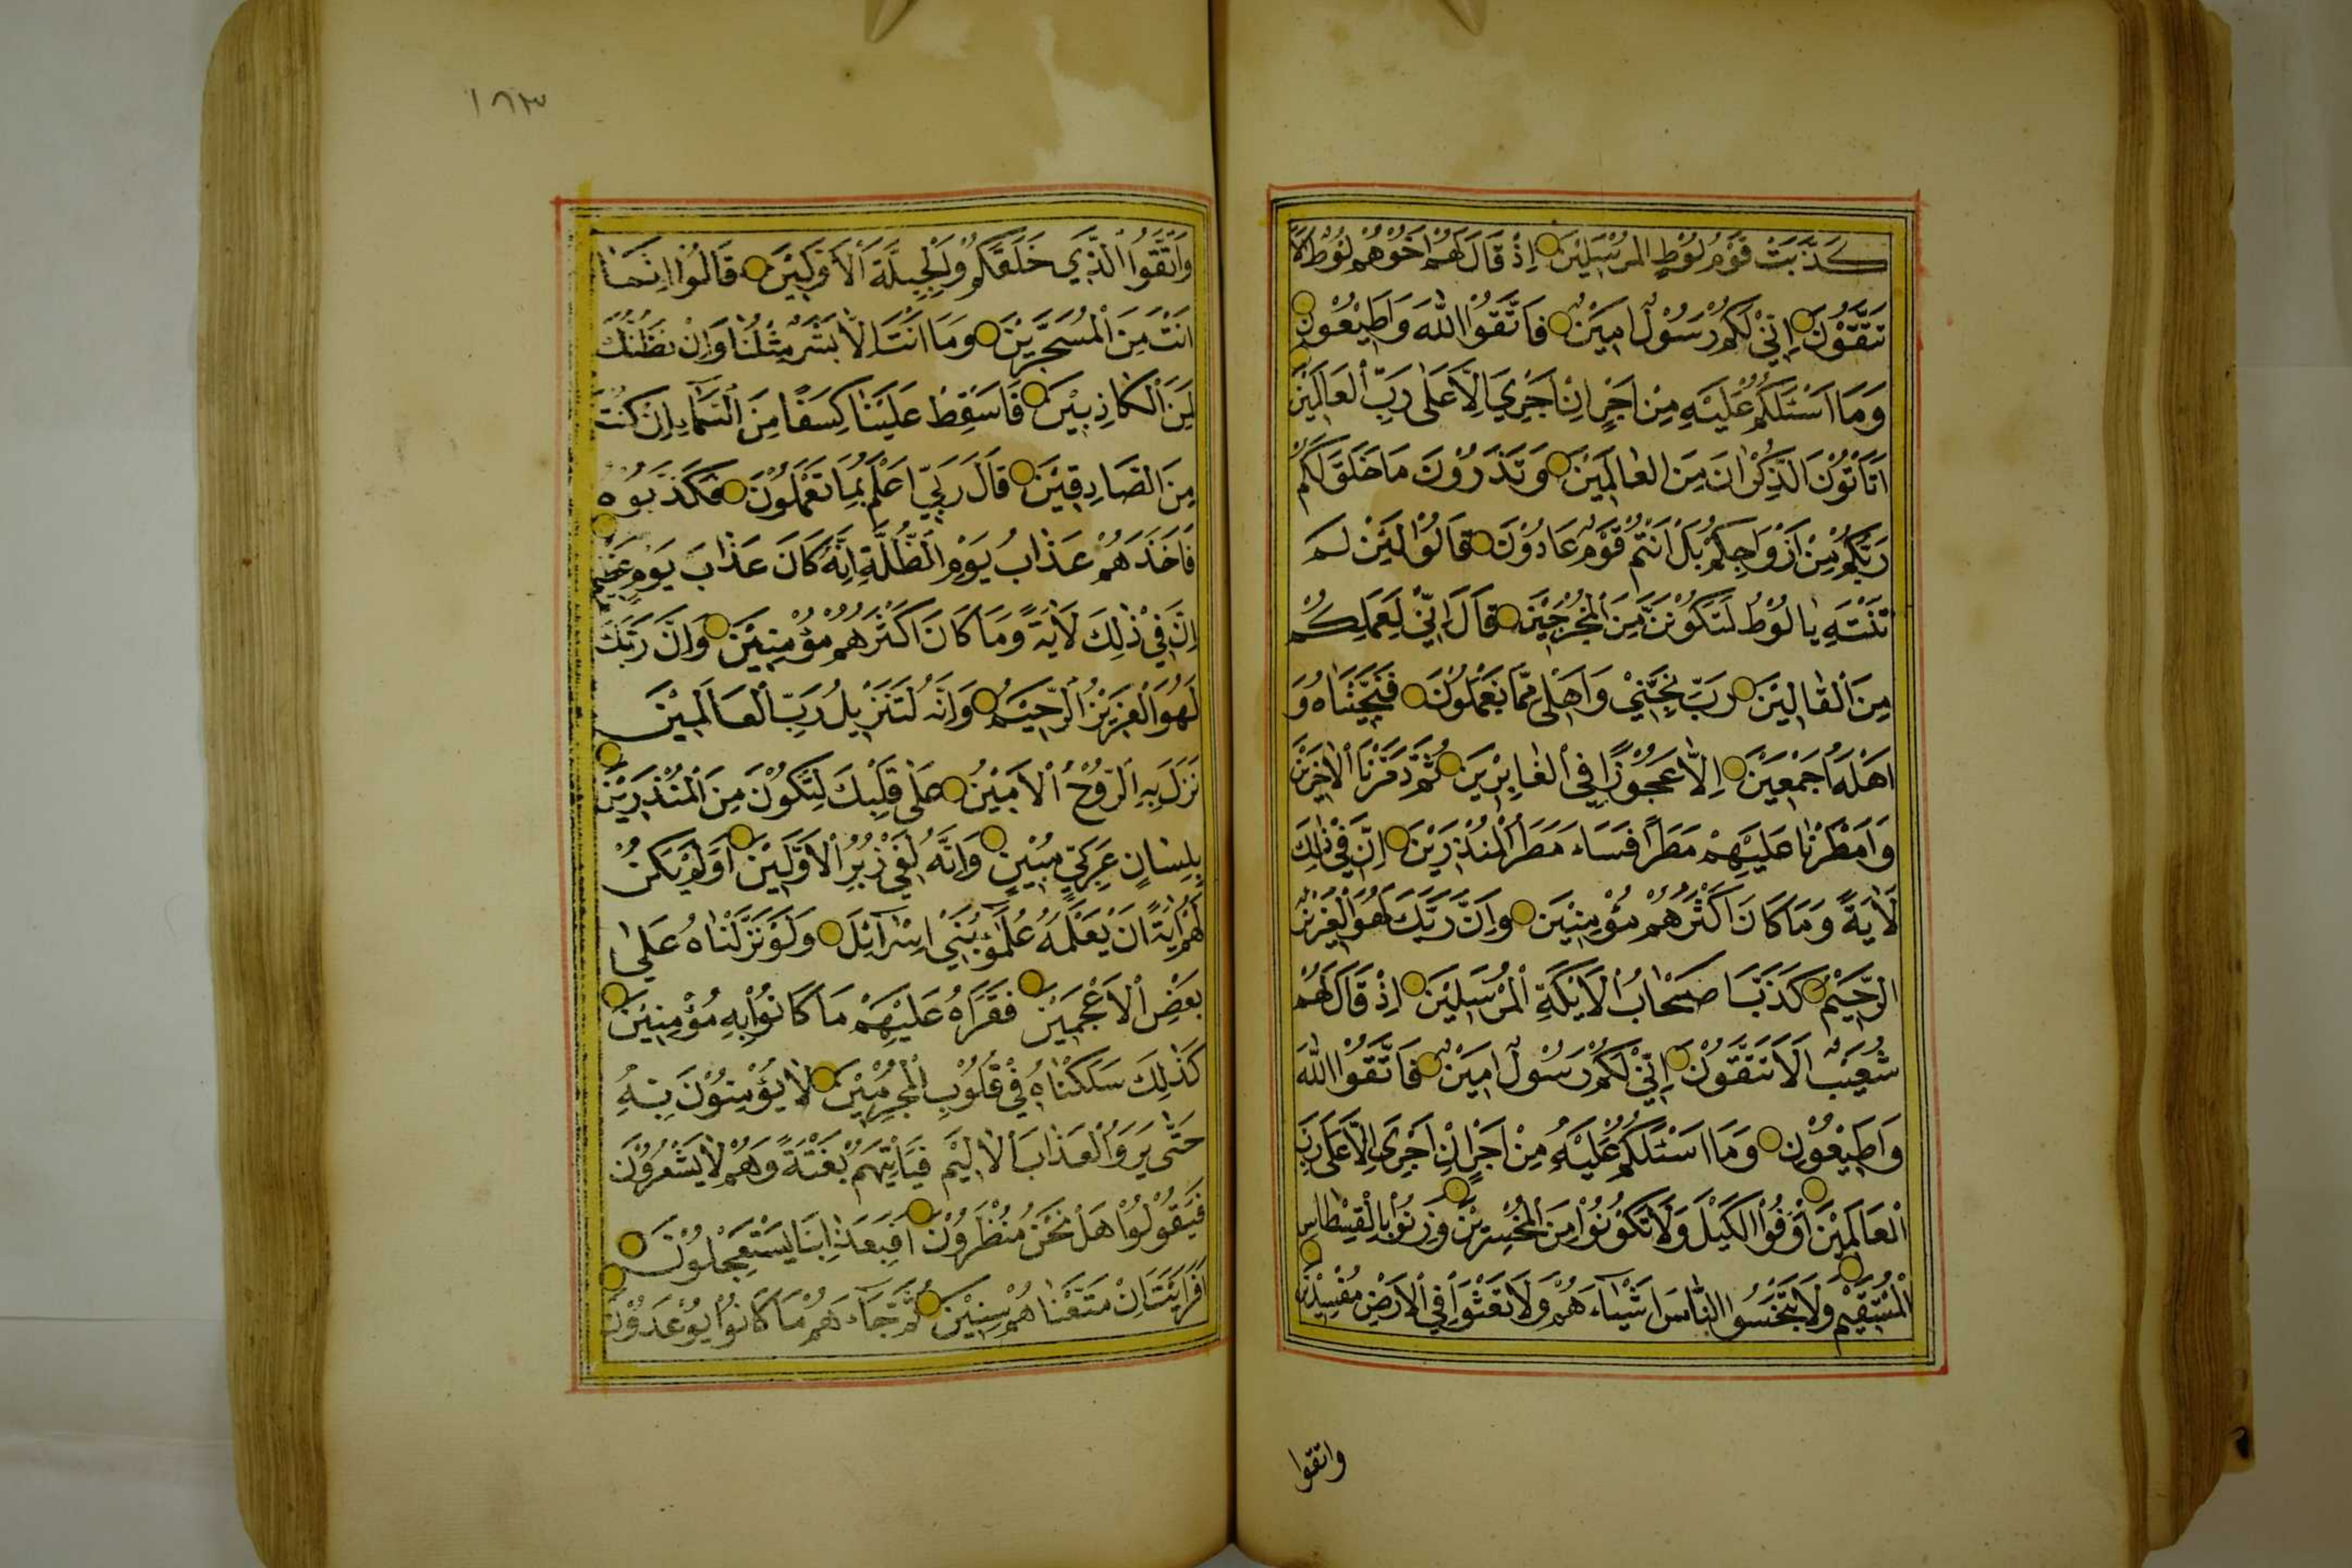 كَذَّبَتْ قَوْمُ لُوْطٍ المُرْسَلِيْنَ اِذْ قَالَ لَهُمْ اَخُوْهُمْ لُوْطٌ اَلَا
تَتَّقُوْنَ اِنِّيْ لَكُمْ رَسُوْلٌ اَمِيْنٌ فَاتَّقُوْا اللّٰهَ وَاَطِيْعُوْنِ
وَمَا اَسْئَلُكُمْ عَلَيْهِ مِنْ اَجْرٍ اِنْ اَجْرِيَ اِلَّا عَلٰى رَبِّ الْعَالَمِيْنَ
اَتَأْتُوْنَ الذُّكْرَانَ مِنَ العَالَمِيْنَ وَتَذَرُوْنَ مَا خَلَقَ لَكُمْ
رَبُّكُمْ مِنْ اَزْوَاجِكُمْ بَلْ اَنْتُمْ قَوْمٌ عَادُوْنَ قَالُوْا لَئِنْ لَمْ
تَنْتَهِ يَا لُوْطُ لَتَكُوْنَنَّ مِنَ الْمُخْرَجِيْنَ قَالَ اِنِّيْ لِعَمَلِكُمْ
مِنَ الْقَالِيْنَ رَبِّ نَجِّنِيْ وَاَهْلِيْ مِمَّا يَعْمَلُوْنَ فَنَجَّيْنَاهُ وَ
اَهْلَهُ اَجْمَعِيْنَ اِلَّا عَجُوْزًا فِي الْغَابِرِيْنَ ثُمَّ دَمَّرْنَا الْاٰخَرِيْنَ
وَاَمْطَرْنَا عَلَيْهِمْ مَطَرًا فَسَاءَ مَطَرُ الْمُنْذَرِيْنَ اِنَّ فِيْ ذٰلِكَ
لَاٰيَةً وَمَا كَانَ اَكْثَرُهُمْ مُؤْمِنِيْنَ وَاِنَّ رَبَّكَ لَهُوَ الْعَزِيْزُ
الرَّحِيْمُ كَذَّبَ اَصْحَابُ الْاَيْكَةِ الْمُرْسَلِيْنَ اِذْ قَالَ لَهُمْ
شُعَيْبٌ اَلَا تَتَّقُوْنَ اِنِّيْ لَكُمْ رَسُوْلٌ اَمِيْنٌ فَاتَّقُوْا اللّٰهَ
وَاَطِيْعُوْنِ وَمَا اَسْئَلُكُمْ عَلَيْهِ مِنْ اَجْرٍ اِنْ اَجْرِيَ اِلَّا عَلٰى رَبِّ
الْعَالَمِيْنَ اَوْفُوْا الْكَيْلَ وَلَا تَكُوْنُوْا مِنَ الْمُخْسِرِيْنَ وَزِنُوْا بِالْقِسْطَاسِ
الْمُسْتَقِيْمِ وَلَا تَبْخَسُوا النَّاسَ اَشْيَاءَهُمْ وَلَا تَعْثَوْا فِي الْاَرْضِ مُفْسِدِيْنَ
واتقوا
١٨٣
وَاتَّقُوْا الَّذِيْ خَلَقَكُمْ وَالْجِبِلَّةَ الْاَوَّلِيْنَ قَالُوْا اِنَّمَا
اَنْتَ مِنَ الْمُسَحَّرِيْنَ وَمَا اَنْتَ اِلَّا بَشَرٌ مِثْلُنَا وَاِنْ نَظُنُّكَ
لَمِنَ الْكَاذِبِيْنَ فَاَسْقِطْ عَلَيْنَا كِسَفًا مِنَ السَّمَاءِ اِنْ كُنْتَ
مِنَ الصَّادِقِيْنَ قَالَ رَبِّيْ اَعْلَمُ بِمَا تَعْمَلُوْنَ فَكَذَّبُوْهُ
فَاَخَذَهُمْ عَذَابُ يَوْمِ الظُّلَّةِ اِنَّهُ كَانَ عَذَابَ يَوْمٍ عَظِيْمٍ
اِنَّ فِيْ ذٰلِكَ لَاٰيَةً وَمَا كَانَ اَكْثَرُهُمْ مُؤْمِنِيْنَ وَاِنَّ رَبَّكَ
لَهُوَ الْعَزِيْزُ الرَّحِيْمُ وَاِنَّهُ لَتَنْزِيْلُ رَبِّ الْعَالَمِيْنَ
نَزَلَ بِهِ الرُّوْحُ الْاَمِيْنُ عَلٰى قَلْبِكَ لِتَكُوْنَ مِنَ الْمُنْذِرِيْنَ
بِلِسَانٍ عَرَبِيٍّ مُبِيْنٍ وَاِنَّهُ لَفِيْ زُبُرِ الْاَوَّلِيْنَ اَوَلَمْ يَكُنْ
لَهُمْ اٰيَةً اَنْ يَعْلَمَهُ عُلَمٰؤُا بَنِيْ اِسْرَآئِلَ وَلَوْ نَزَّلْنَاهُ عَلٰى
بَعْضِ الْاَعْجَمِيْنَ فَقَرَاَهُ عَلَيْهِمْ مَا كَانُوْا بِهِ مُؤْمِنِيْنَ
كَذٰلِكَ سَلَكْنَاهُ فِيْ قُلُوْبِ الْمُجْرِمِيْنَ لَا يُؤْمِنُوْنَ بِهِ
حَتّٰى يَرَوُا الْعَذَابَ الْاَلِيْمَ فَيَاْتِيَهُمْ بَغْتَةً وَهُمْ لَا يَشْعُرُوْنَ
فَيَقُوْلُوْا هَلْ نَحْنُ مُنْظَرُوْنَ اَفَبِعَذَابِنَا يَسْتَعْجِلُوْنَ
اَفَرَاَيْتَ اِنْ مَتَّعْنَاهُمْ سِنِيْنَ ثُمَّ جَاءَهُمْ مَا كَانُوْا يُوْعَدُوْنَ